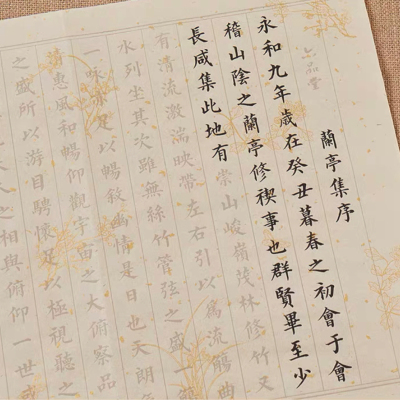 六品堂
蘭亭集序
永和九年歲在癸丑暮春之初會于會
稽山陰之蘭亭修禊事也群賢畢至少
長咸集此地有崇山峻嶺茂林修竹又
有清流激湍映帶左右引以爲流觴曲
水列坐其次雖無絲竹管弦之盛一
一詠亦足以暢敘幽情是日也天朗
清惠風和暢仰觀宇宙之大俯察品
之盛所以游目騁懷足以極視聽之
人之相與俯仰一世或